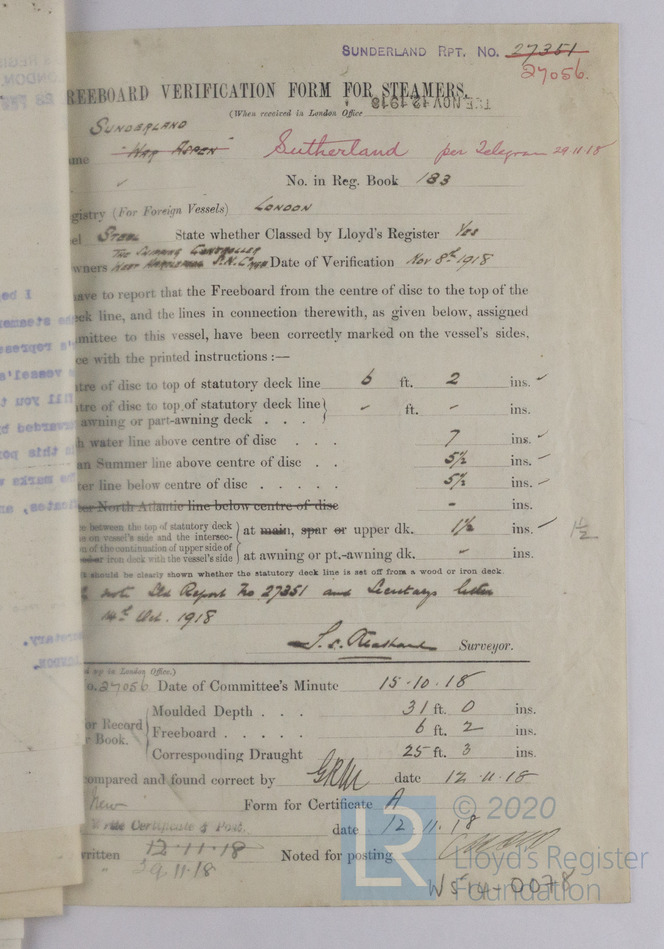 SUNDERLAND RPT. No. 27351
27056.
REEBOARD VERIFICATION FORM FOR STEAMERS.
(When received in London Office
TUE. NOV 12 1918
SUNDERLAND
ame "WAR ASPEN" Sutherland per Telegram 29.11.18
No. in Reg. Book 183
gistry (For Foreign Vessels) LONDON
el STEEL State whether Classed by Lloyd's Register YES
THE SHIPPING CONTROLLER
wners WEST HARTLEPOOL S.N. Co Date of Verification Nov 8th 1918
ave to report that the Freeboard from the centre of disc to the top of the
eck line, and the lines in connection therewith, as given below, assigned
mmittee to this vessel, have been correctly marked on the vessel's sides,
ce with the printed instructions :—
tre of disc to top of statutory deck line 6 ft. 2 ins.
tre of disc to top of statutory deck line
awning or part-awning deck . . . - ft. - ins.
h water line above centre of disc . . . 7 ins.
an Summer line above centre of disc . . 5½ ins.
ter line below centre of disc . . . . . 5½ ins.
er North Atlantic line below centre of disc - ins.
e between the top of statutory deck
e on vessel's side and the intersec- at main, spar or upper dk. 1½ ins. 1½
n of the continuation of upper side of
iron deck with the vessel's side at awning or pt.-awning dk. - ins.
t should be clearly shown whether the statutory deck line is set off from a wood or iron deck.
note Sld Report No 27351 and Secretarys letter
14th Oct. 1918
Surveyor.
d up in London Office.)
o. 27056 Date of Committee's Minute 15.10.18
Moulded Depth . . . 31 ft. 0 ins.
or Record Freeboard . . . . . 6 ft. 2 ins.
r Book. Corresponding Draught 25 ft. 3 ins.
ompared and found correct by GRM date 12.11.18
New Form for Certificate A
Write Certificate & Post. date 12.11.18
written 12.11.18 Noted for posting
29.11.18
© 2020
LR Lloyd's Register
Foundation
W514-0078